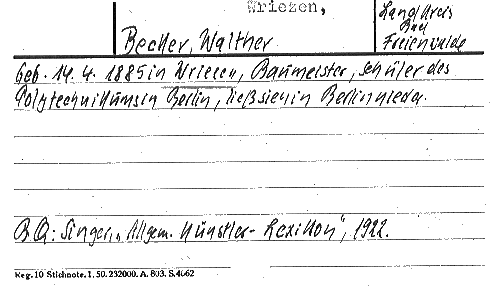 Wriezen,
Landkreis
Bad
Freienwalde
Becker, Walther
Geb. 14. 4. 1885 in Wriezen, Baumeister, Schüler des
Polytechnikums in Berlin, ließ sich in Berlin nieder.
BQ: Singer, "Allgem. Künstler-Lexikon", 1922.
Reg. 10 Stichnote. I. 50. 232000. A. 803. S. 4662